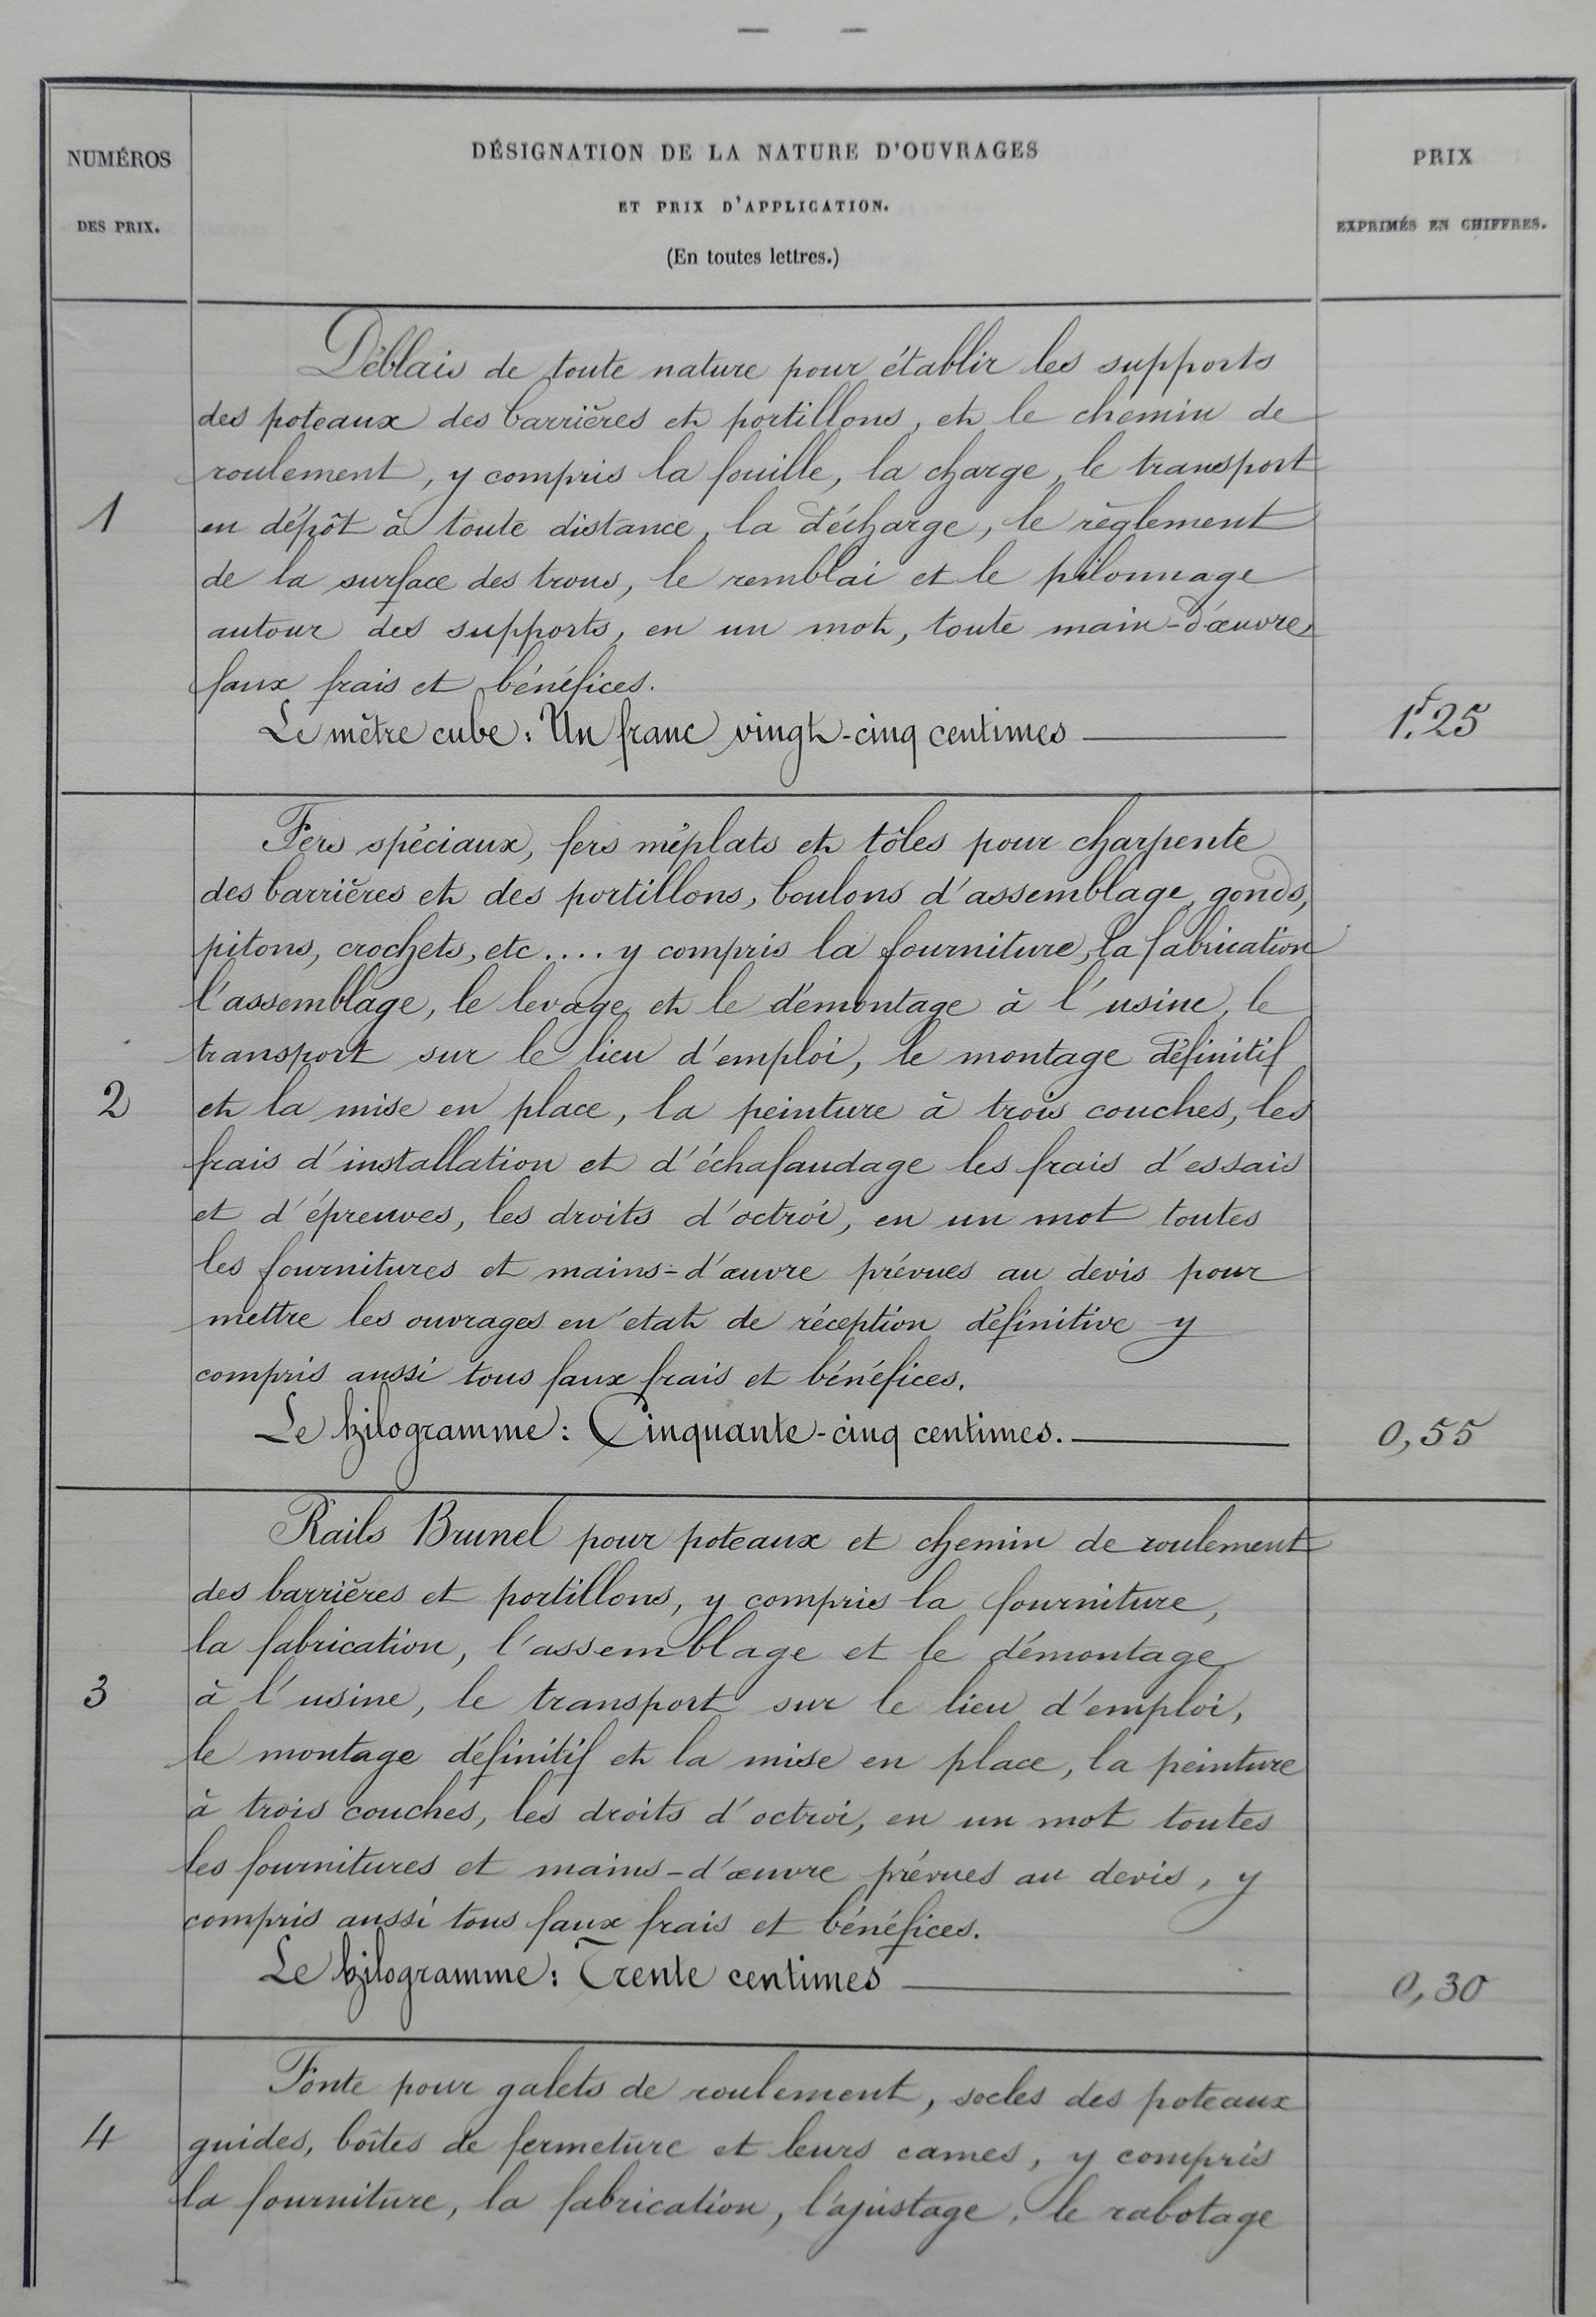 — —
NUMÉROS
DES PRIX.
DÉSIGNATION DE LA NATURE D'OUVRAGES
ET PRIX D'APPLICATION.
(En toutes lettres.)
PRIX
EXPRIMÉS EN CHIFFRES.
1
Déblais de toute nature pour établir les supports
des poteaux des barrières et portillons, et le chemin de
roulement, y compris la fouille, la charge, le transport
en dépôt à toute distance, la décharge, le règlement
de la surface des trous, le remblai et le pilonnage
autour des supports, en un mot, toute main-d'œuvre,
faux frais et bénéfices.
Le mètre cube : Un franc vingt-cinq centimes —
1f.25
2
Fers spéciaux, fers méplats et tôles pour charpente
des barrières et des portillons, boulons d'assemblage, gonds,
pitons, crochets, etc.... y compris la fourniture, la fabrication
l'assemblage, le levage et le démontage à l'usine, le
transport sur le lieu d'emploi, le montage définitif
et la mise en place, la peinture à trois couches, les
frais d'installation et d'échafaudage les frais d'essais
et d'épreuves, les droits d'octroi, en un mot toutes
les fournitures et mains-d'œuvre prévues au devis pour
mettre les ouvrages en état de réception définitive y
compris aussi tous faux frais et bénéfices.
Le kilogramme : Cinquante-cinq centimes. —
0,55
3
Rails Brunel pour poteaux et chemin de roulement
des barrières et portillons, y compris la fourniture,
la fabrication, l'assemblage et le démontage
à l'usine, le transport sur le lieu d'emploi,
le montage définitif et la mise en place, la peinture
à trois couches, les droits d'octroi, en un mot toutes
les fournitures et mains-d'œuvre prévues au devis, y
compris aussi tous faux frais et bénéfices.
Le kilogramme : Trente centimes —
0,30
4
Fonte pour galets de roulement, socles des poteaux
guides, boîtes de fermeture et leurs cames, y compris
la fourniture, la fabrication, l'ajustage, le rabotage